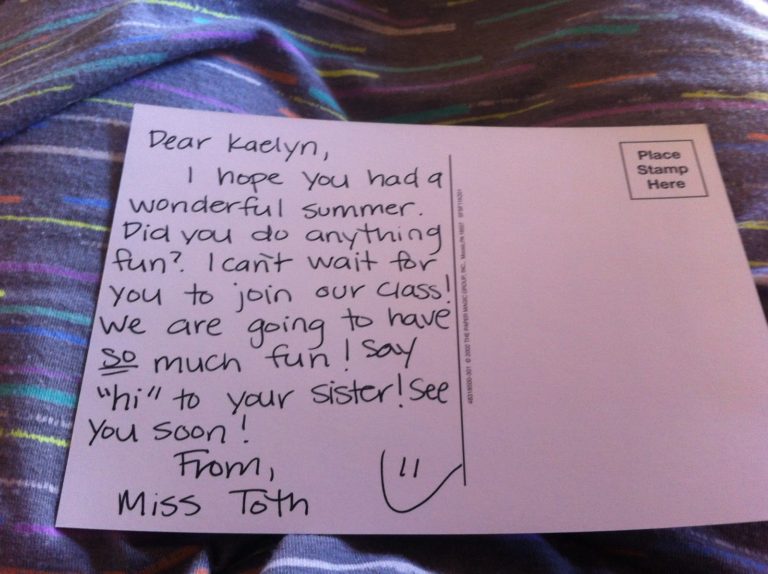 Dear Kaelyn,
I hope you had a
wonderful summer.
Did you do anything
fun? I can't wait for
you to join our class!
We are going to have
so much fun! Say
"hi" to your sister! See
you soon!
From,
Miss Toth
Place
Stamp
Here
© 2002 THE PAPER MAGIC GROUP, INC.,